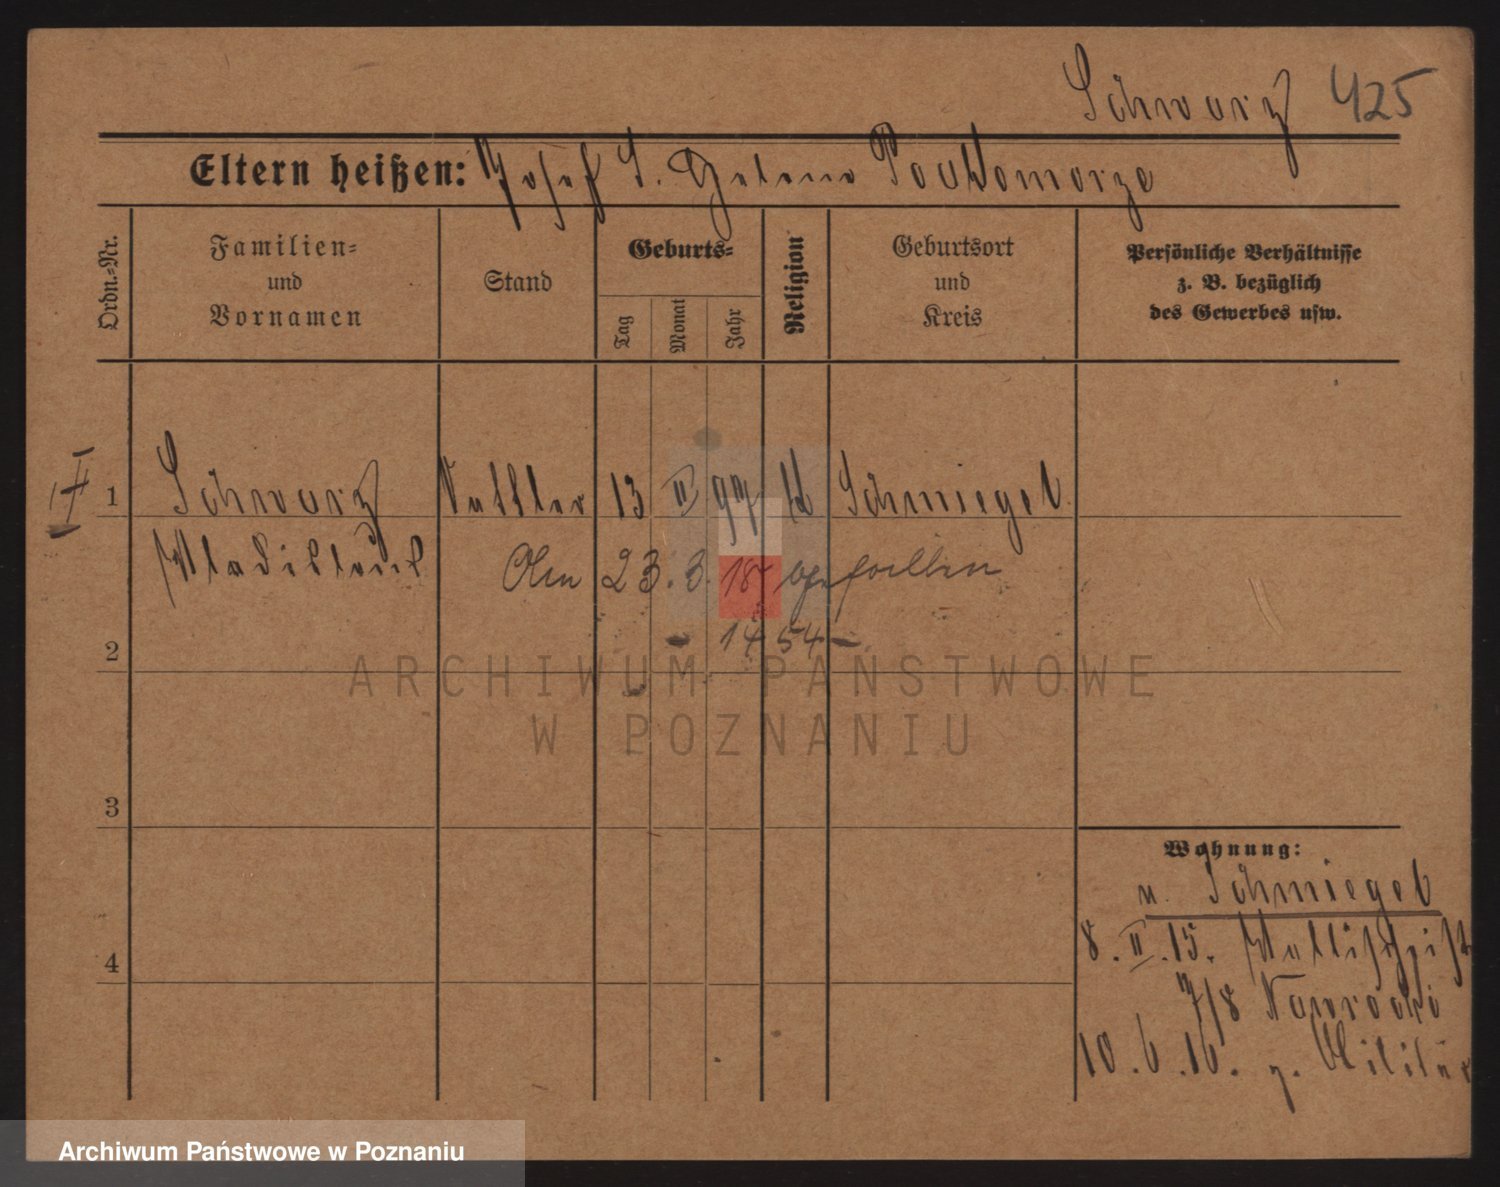 Schwarz 425
Eltern heißen: Josef S. Helene
Ordn.=Nr.
Familien=
und
Vornamen
Stand
Geburts=
Tag
Monat
Jahr
Religion
Geburtsort
und
Kreis
Persönliche Verhältnisse
z. B. bezüglich
des Gewerbes usw.
1 Schwarz Sattler 13 II 97 k Schmiegel
Wladislaus Am 23.3.18 gefallen
- 1454 -
2
ARCHIWUM PAŃSTWOWE
W POZNANIU
3
Wohnung:
n. Schmiegel
4
8.II.15. Wallischei
7/8 Nawrocki
10.6.16. z. Militär
Archiwum Państwowe w Poznaniu